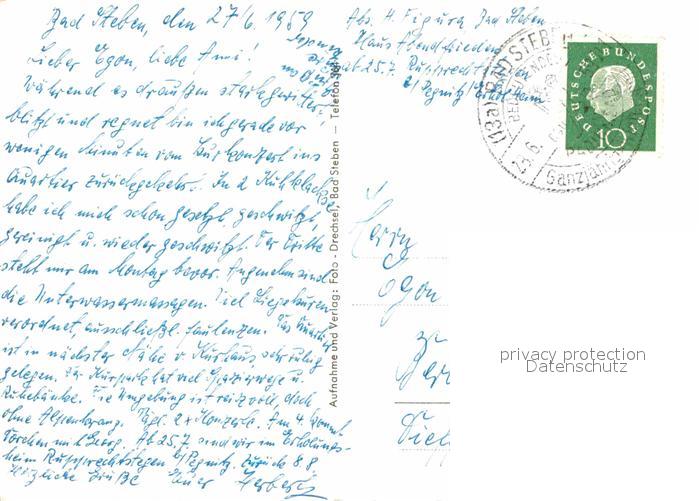 Bad Steben, den 27/6. 1959
Lieber Egon, liebe Anni!
Während es draußen stark gewitter,
blitzt und regnet bin ich gerade vor
wenigen Minuten vom Kurkonzert ins
Quartier zurückgekehrt. In 2
habe ich mich schon gesetzt, geschwitzt,
gereinigt u. wieder geschwitzt. Der dritte
steht mir am Montag bevor. Angenehm sind
die Unterwassermassagen. Viel Liegekuren
verordnet, ausschließl. faulenzen. Das Quart.
ist in nächster Nähe v. Kurhaus sehr ruhig
gelegen. Der Kurpark hat viel Spazierwege u.
Ruhebänke. Die Umgebung ist reizvoll, doch
ohne Alpencharakter. Tägl. 2 x Konzerte. Am 4. kommt
Dorchen m. Georg. Ab 25.7. sind wir im Erholungs-
heim Rupprechtstegen b/Pegnitz. Zurück 8.8.
Herzliche Grüße Euer Herbert
Abs. H. Figura, Bad Steben
Haus Abendfrieden
ab 25.7. Rupprechtstegen
b/Pegnitz, Erhol. heim
Aufnahme und Verlag: Foto - Drechsel, Bad Steben — Telefon
DEUTSCHE BUNDESPOST
10
(13a) BAD STEBEN
Ganzjährig
Herrn
Egon
zu
Ber
Siel
privacy protection
Datenschutz